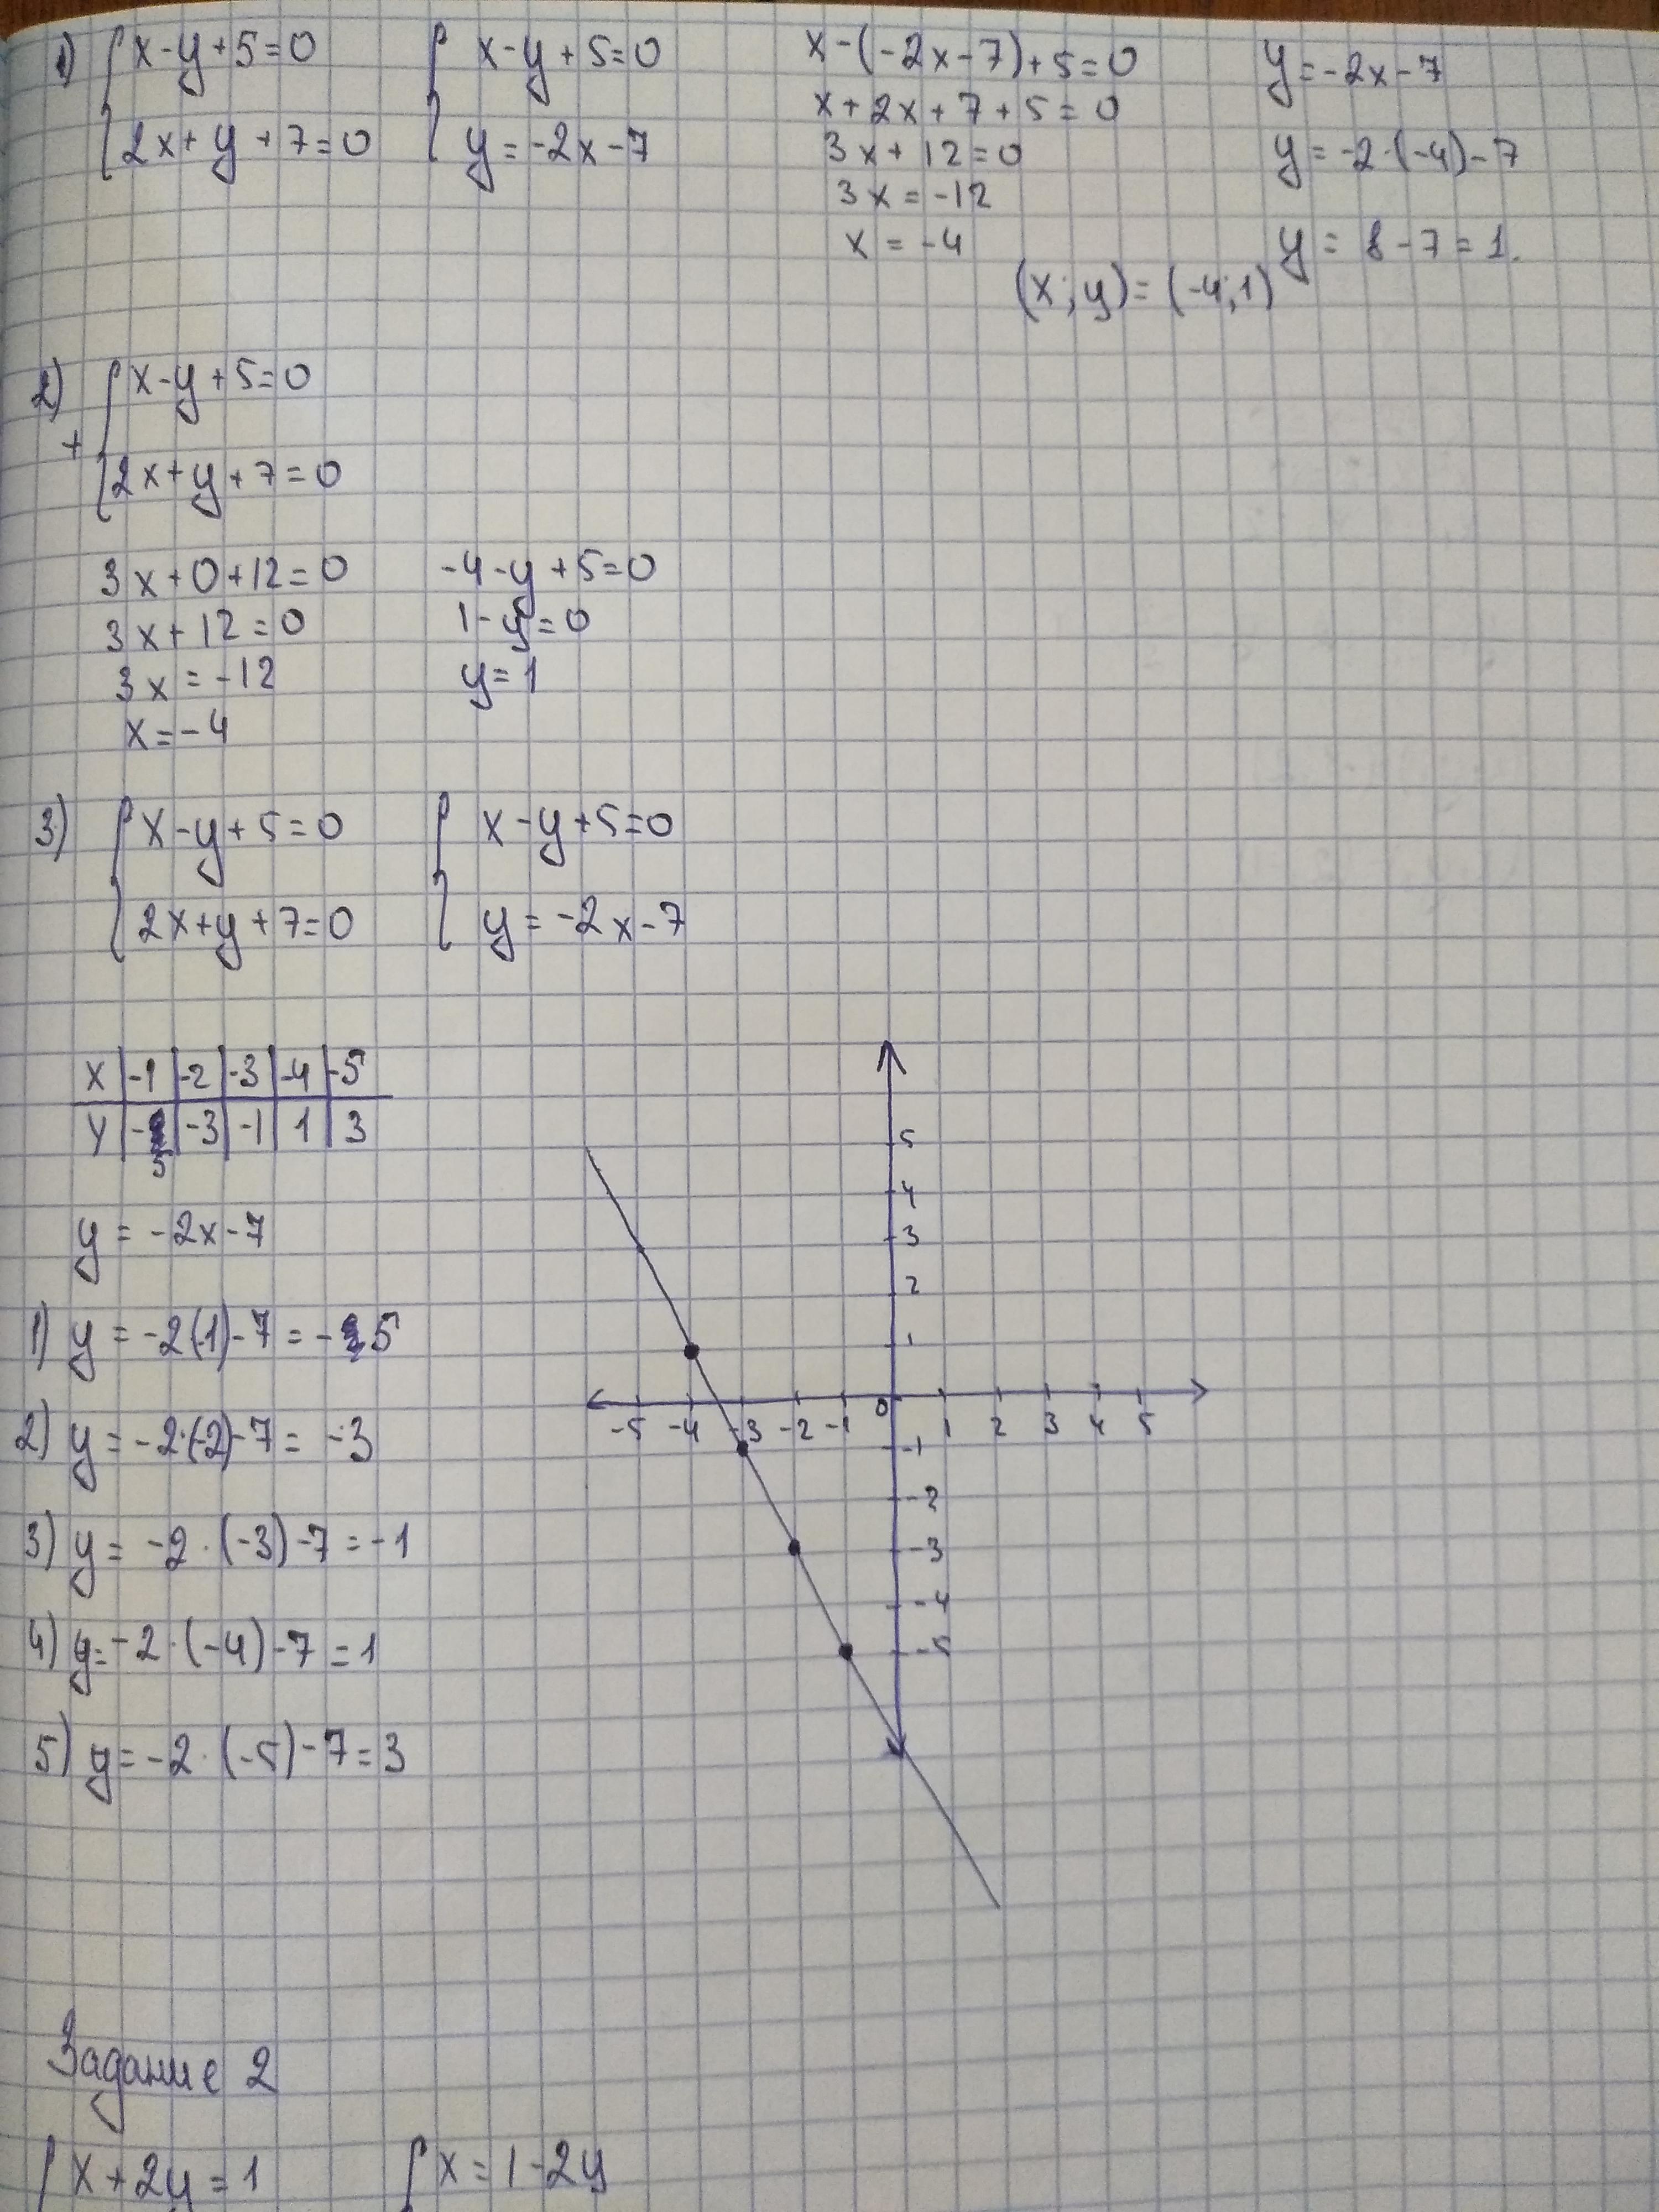 1) { x-y+5=0
2x+y+7=0
{ x-y+5=0
y=-2x-7
x-(-2x-7)+5=0
x+2x+7+5=0
3x+12=0
3x=-12
x=-4
y=-2x-7
y=-2·(-4)-7
y=8-7=1.
(x;y)=(-4;1)
2) { x-y+5=0
+
2x+y+7=0
3x+0+12=0
3x+12=0
3x=-12
x=-4
-4-y+5=0
1-y=0
y=1
3) { x-y+5=0
2x+y+7=0
{ x-y+5=0
y=-2x-7
x | -1 | -2 | -3 | -4 | -5
y | -5 | -3 | -1 | 1 | 3
y=-2x-7
1) y=-2(-1)-7=-5
2) y=-2·(-2)-7=-3
3) y=-2·(-3)-7=-1
4) y=-2·(-4)-7=1
5) y=-2·(-5)-7=3
5
4
3
2
1
-5 -4 -3 -2 -1 0 1 2 3 4 5
-1
-2
-3
-4
-5
Задание 2
{ x+2y=1
{ x=1-2y